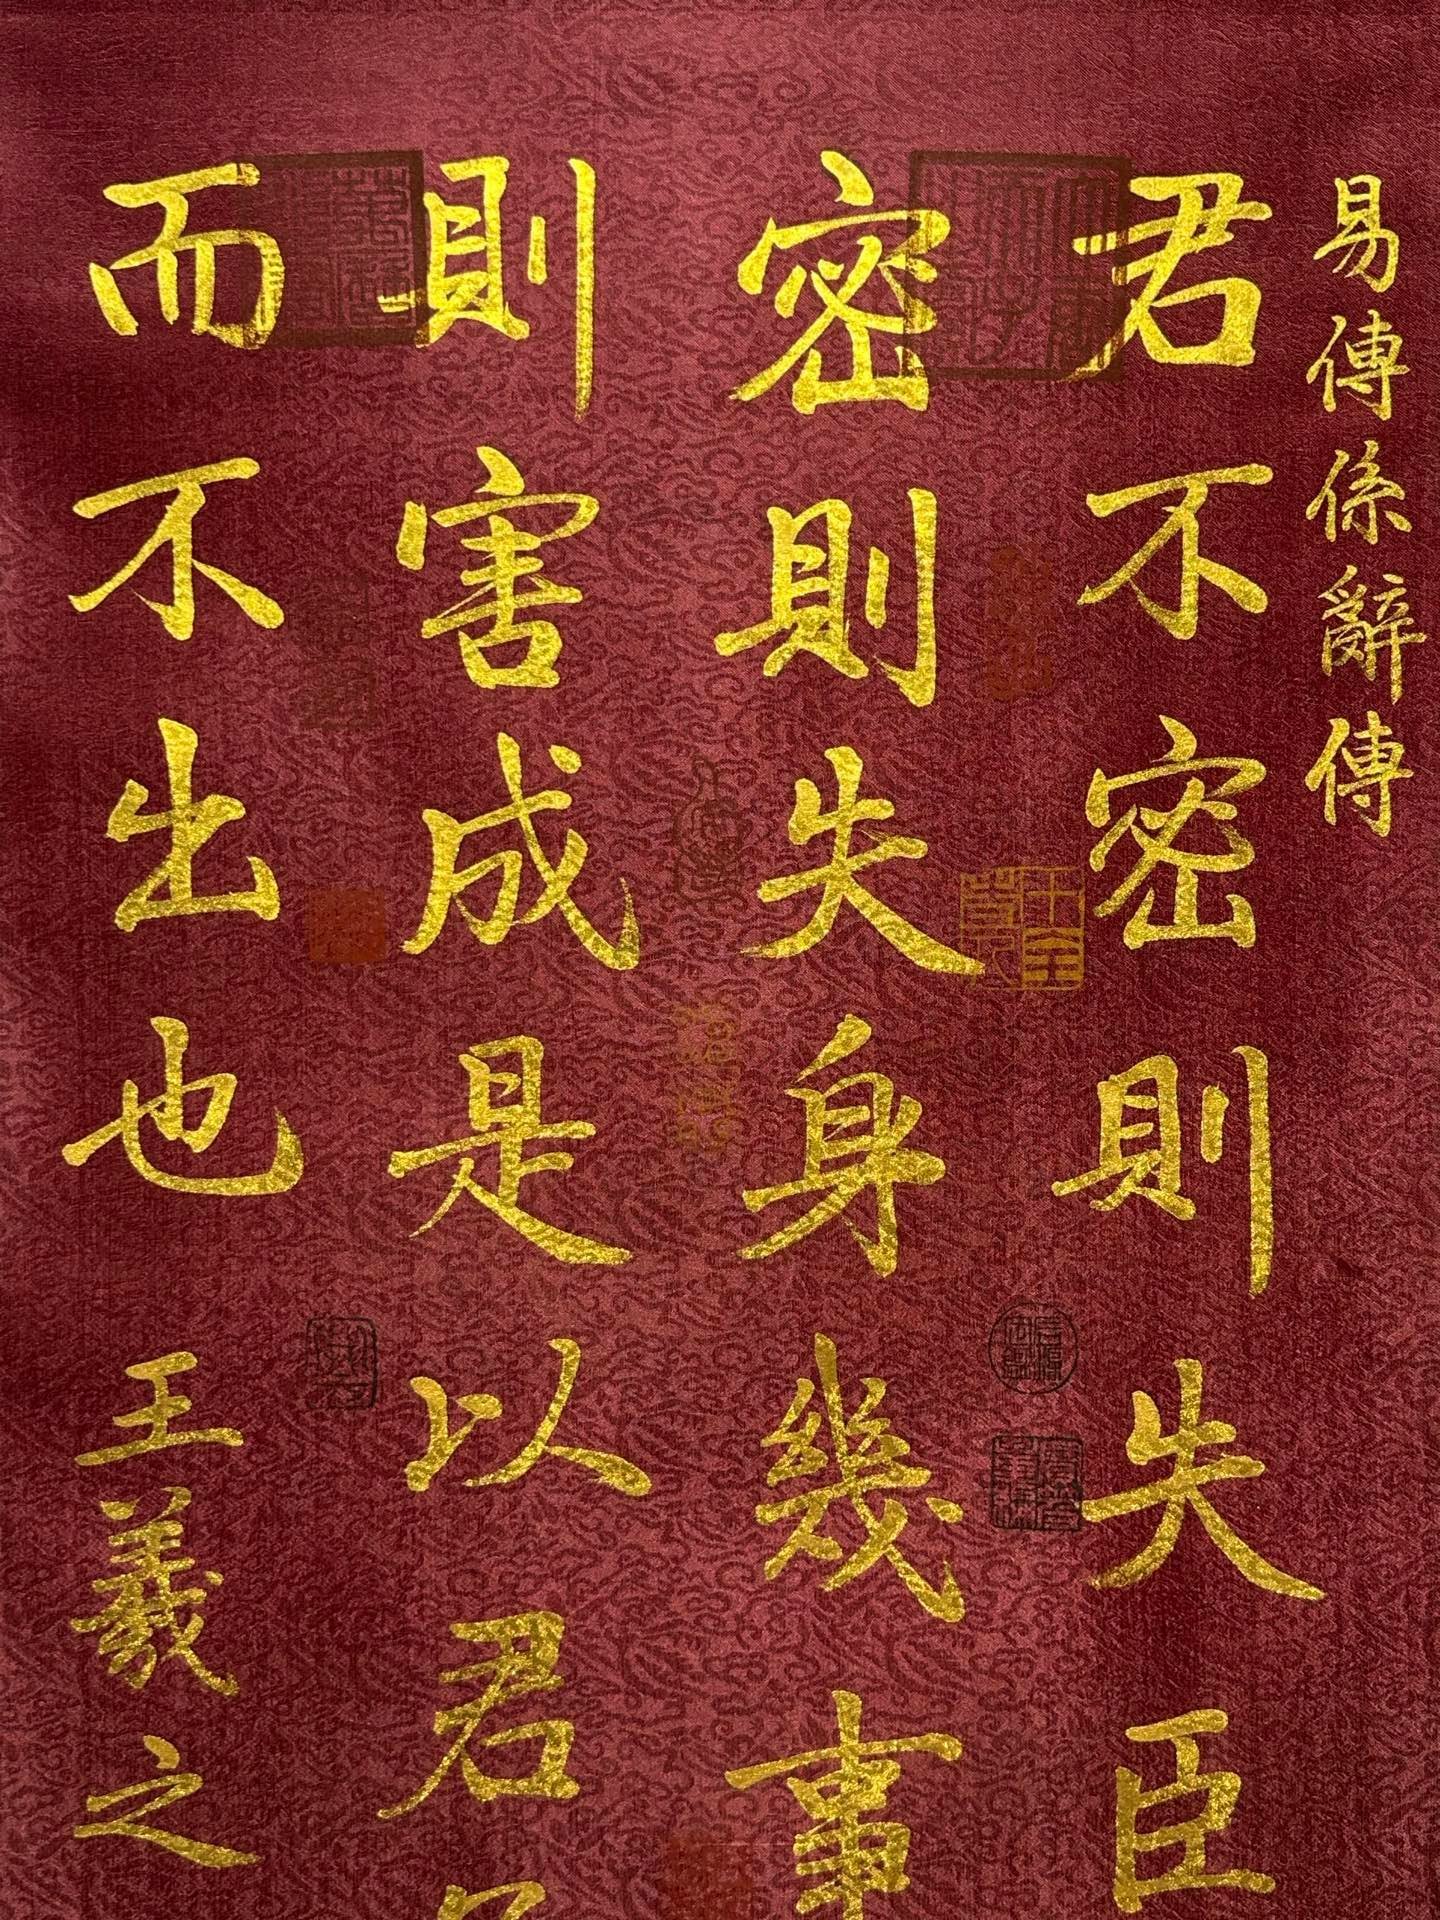 易傳係辭傳
君不密則失臣
密則失身幾事
則害成是以君
而不出也
王羲之